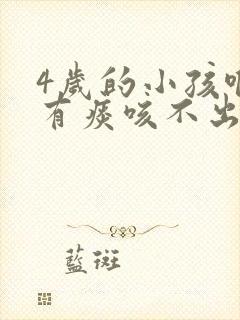 4歲的小孩
有痰咳不出
藍斑